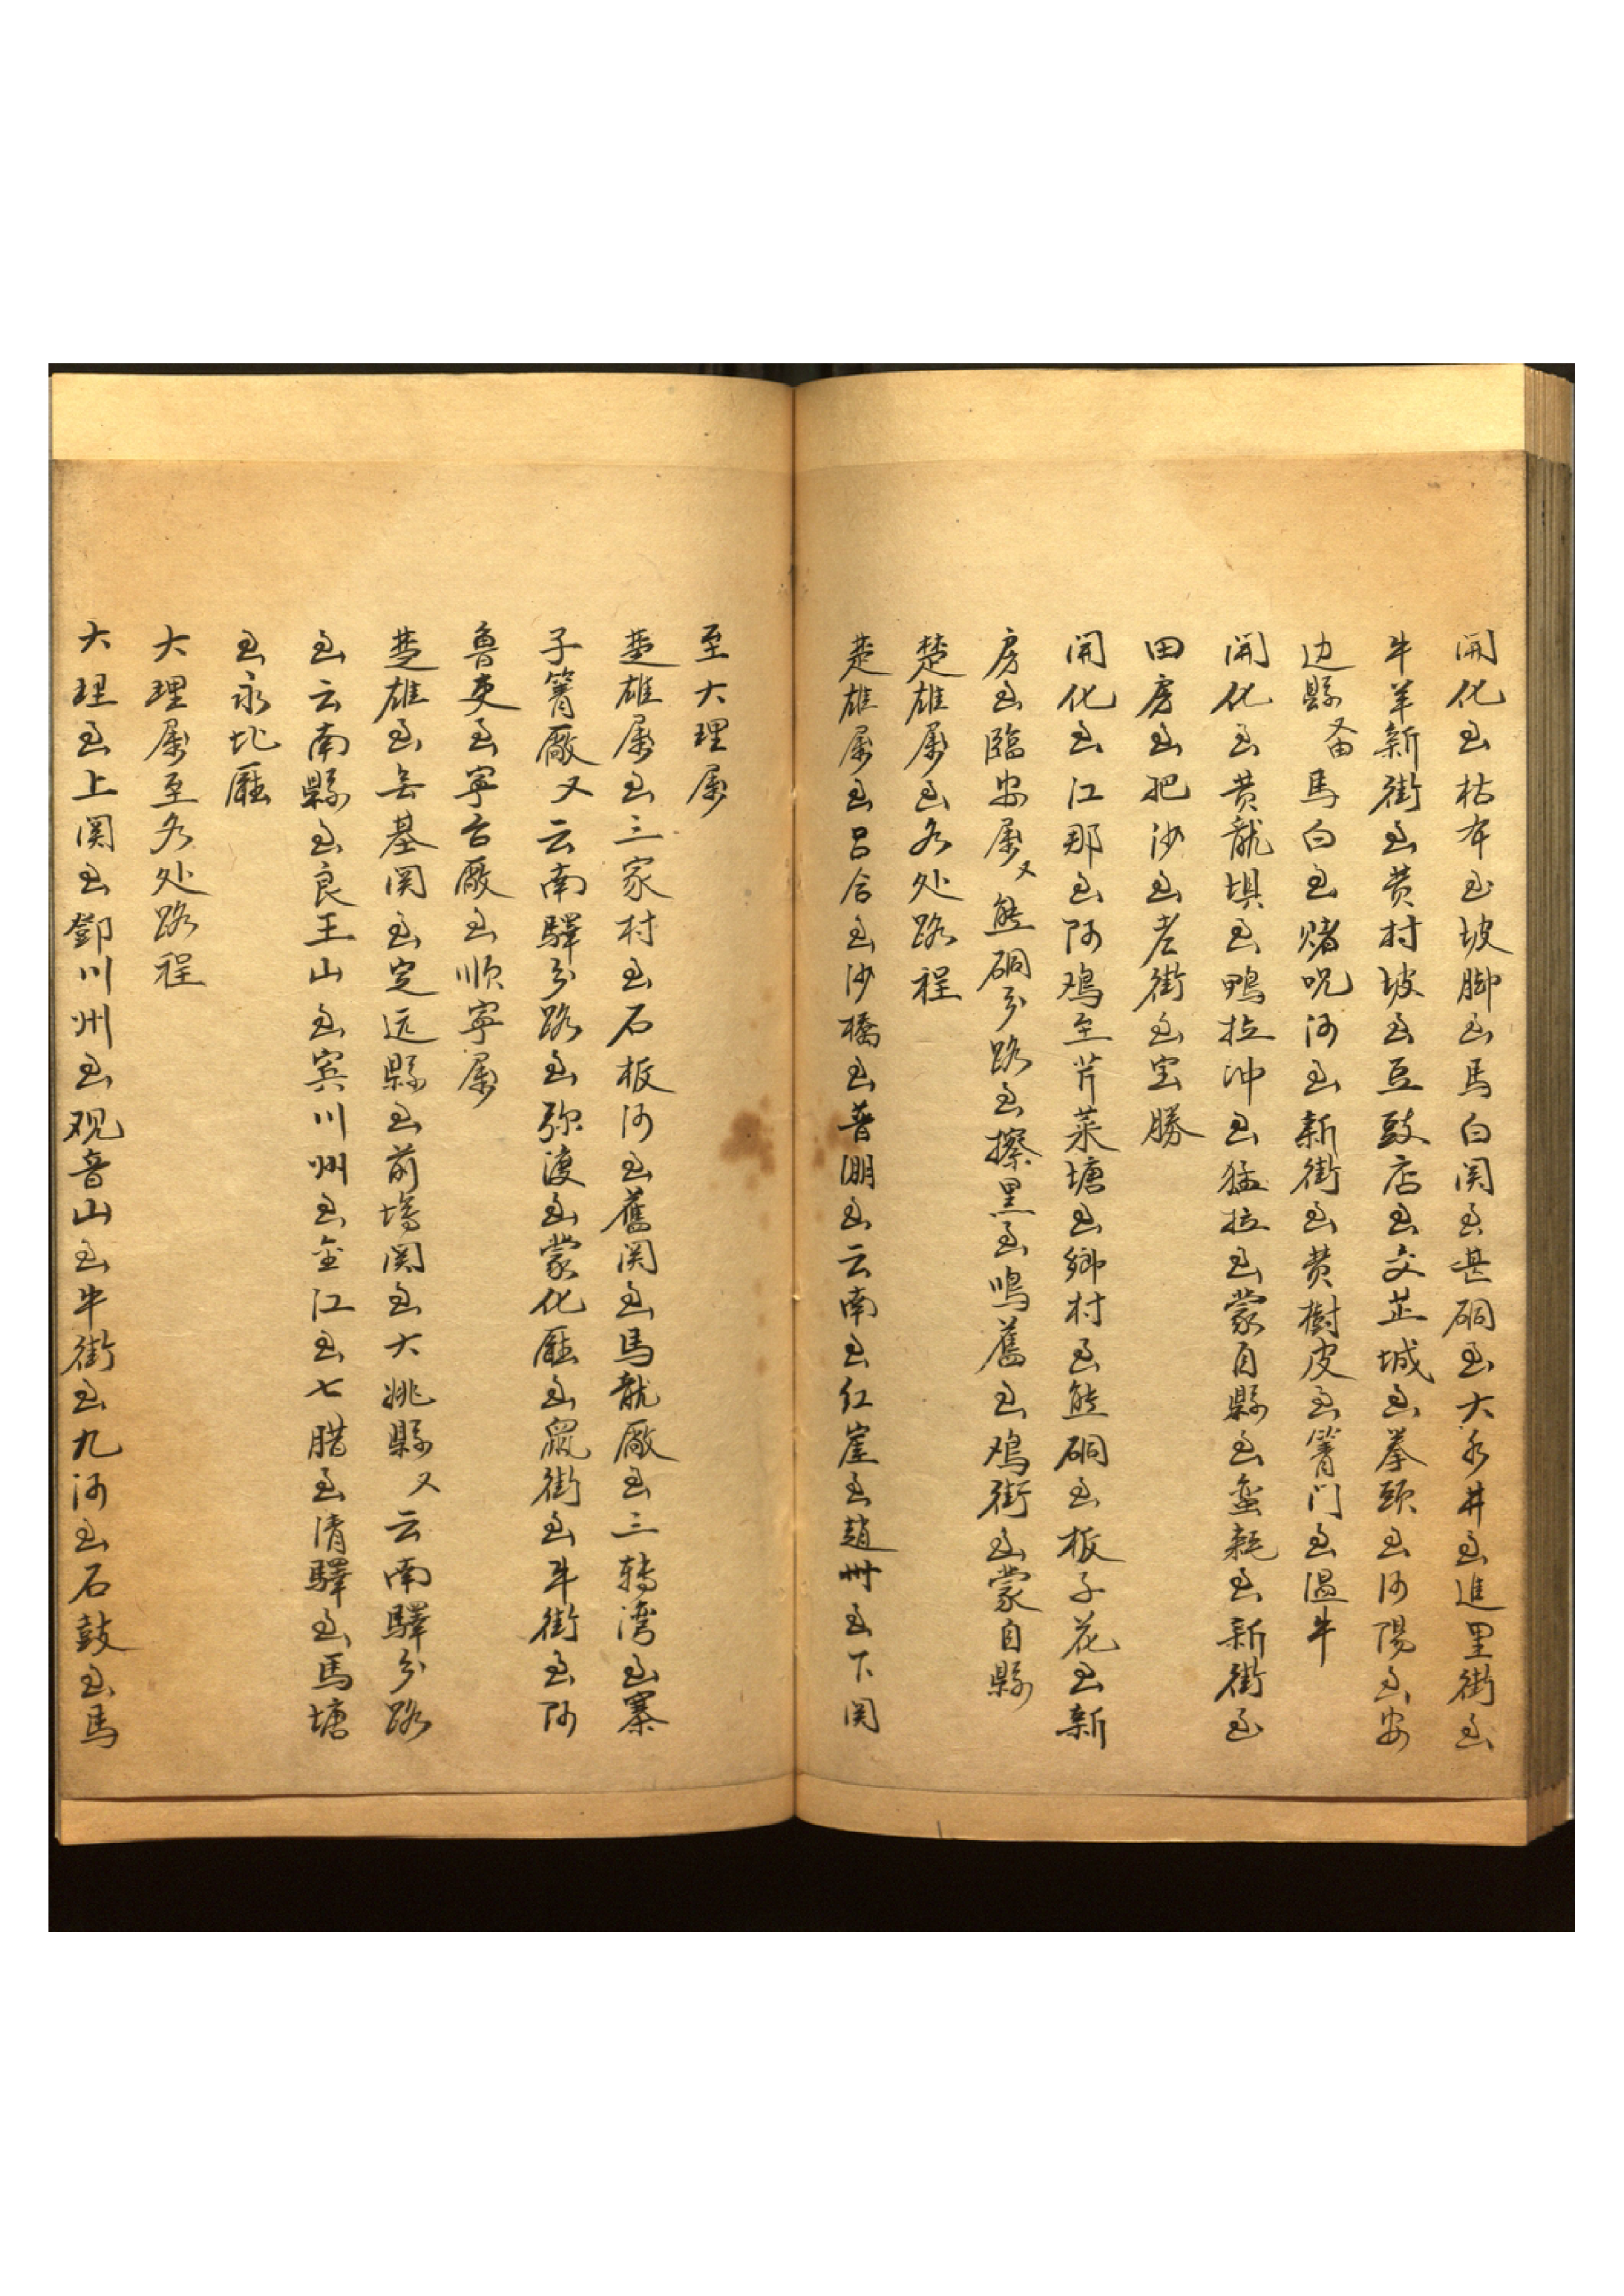 開化至枯木至坡脚至馬白関至甚硐至大水井至進里街至
牛羊新街至黄村坡至豆豉店至交芷城至拳頭至河陽至安
边縣又由馬白至赌咒河至新街至黄樹皮至箐门至温牛
開化至黄龍埧至鴨拉冲至猛拉至蒙自縣至蛮耗至新街至
田房至耙沙至老街至宝勝
開化至江那至阿鸡至芹菜塘至鄉村至熊硐至板子花至新
房至臨安府又熊硐分路至擦黑至鳴鷲至鸡街至蒙自縣
楚雄府至各处路程
楚雄府至吕合至沙橋至普淜至云南至红崖至趙州至下関
至大理府
楚雄府至三家村至石板河至舊関至馬龍廠至三轉湾至寨
子箐廠又云南驛分路至弥渡至蒙化廰至鼠街至牛街至阿
魯吏至寧台廠至顺寧府
楚雄至無基関至定远縣至前塲関至大姚縣又云南驛分路
至云南縣至良王山至賓川州至金江至七腊至清驛至馬塘
至永北廰
大理府至各处路程
大理至上関至鄧川州至观音山至牛街至九河至石鼓至馬